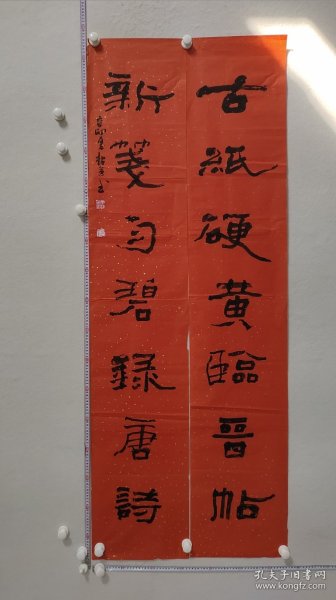 古紙硬黃臨晉帖
新箋勻碧錄唐詩
孔夫子旧书网